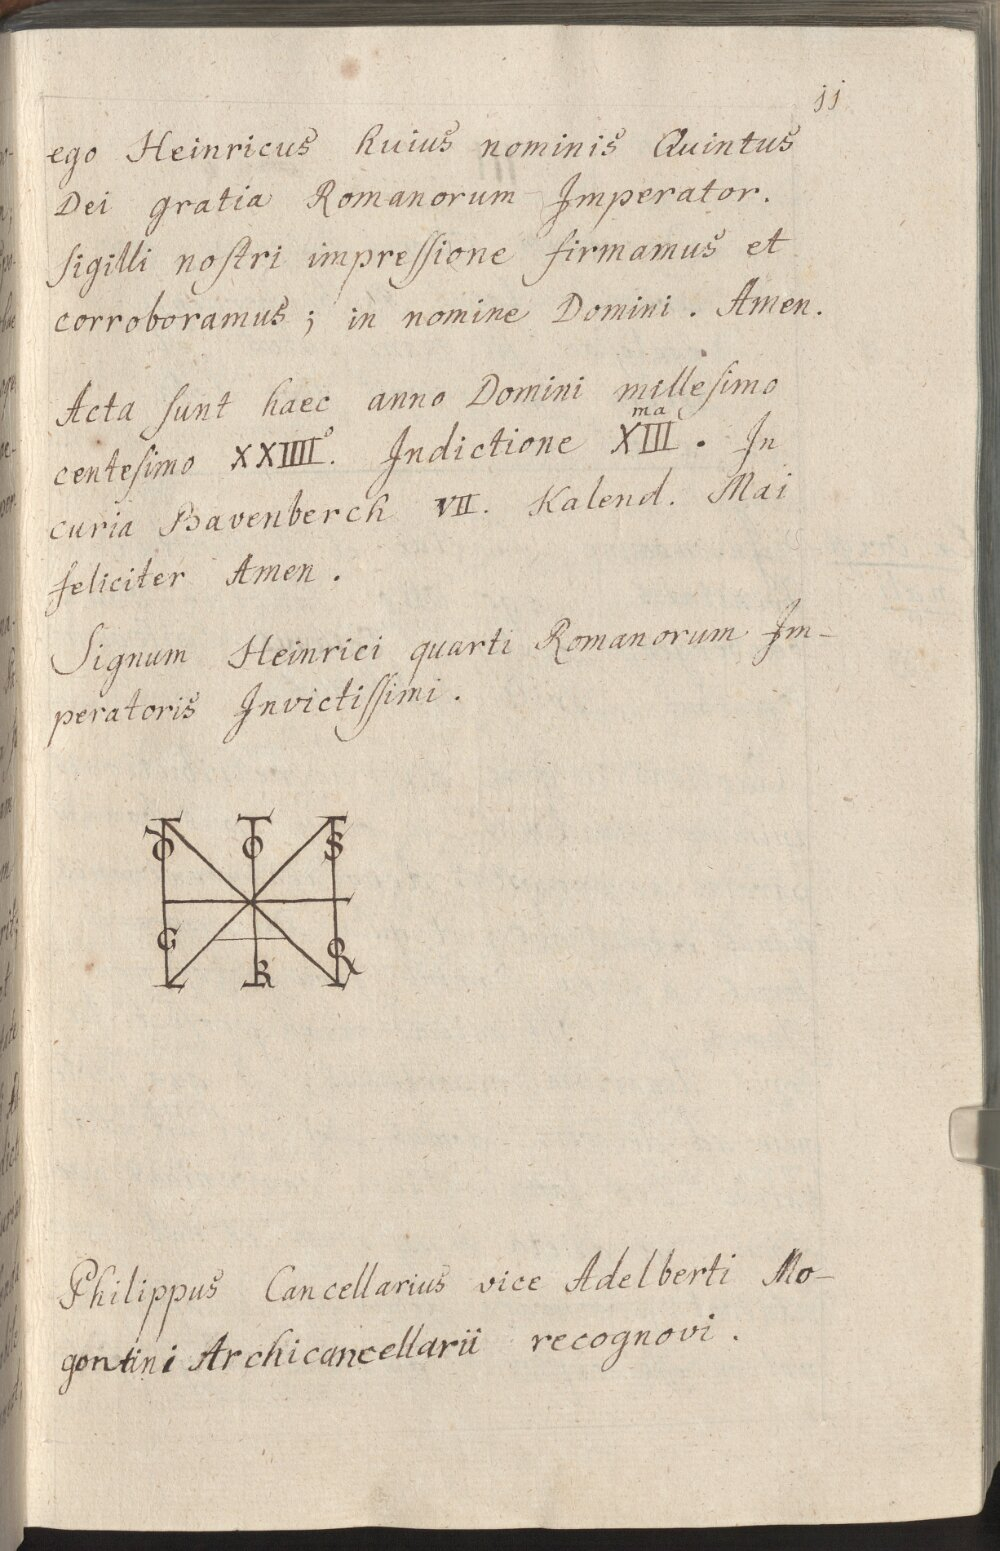 11
ego Heinricus huius nominis Quintus
Dei gratia Romanorum Imperator.
sigilli nostri impressione firmamus et
corroboramus; in nomine Domini. Amen.
Acta sunt haec anno Domini millesimo
centesimo XXIIII°. Indictione XIII ma. In
curia Bavenberch VII. Kalend. Mai
feliciter Amen.
Signum Heinrici quarti Romanorum Im-
peratoris Invictissimi.
Philippus Cancellarius vice Adelberti Mo-
gontini Archicancellarii recognovi.